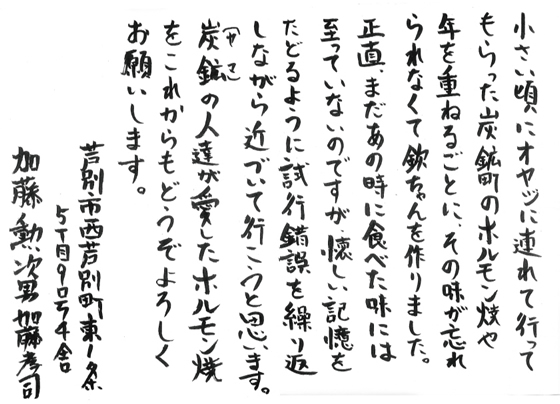 小さい頃にオヤジに連れて行って
もらった炭鉱町のホルモン焼や
年を重ねるごとに、その味が忘れ
られなくて欽ちゃんを作りました。
正直、まだあの時に食べた味には
至っていないのですが、懐しい記憶を
たどるように試行錯誤を繰り返
しながら近づいて行こうと思います。
炭鉱(ヤマ)の人達が愛したホルモン焼
をこれからもどうぞよろしく
お願いします。
芦別市西芦別町東1条
5丁目9号4舎
加藤勲次男 加藤孝司